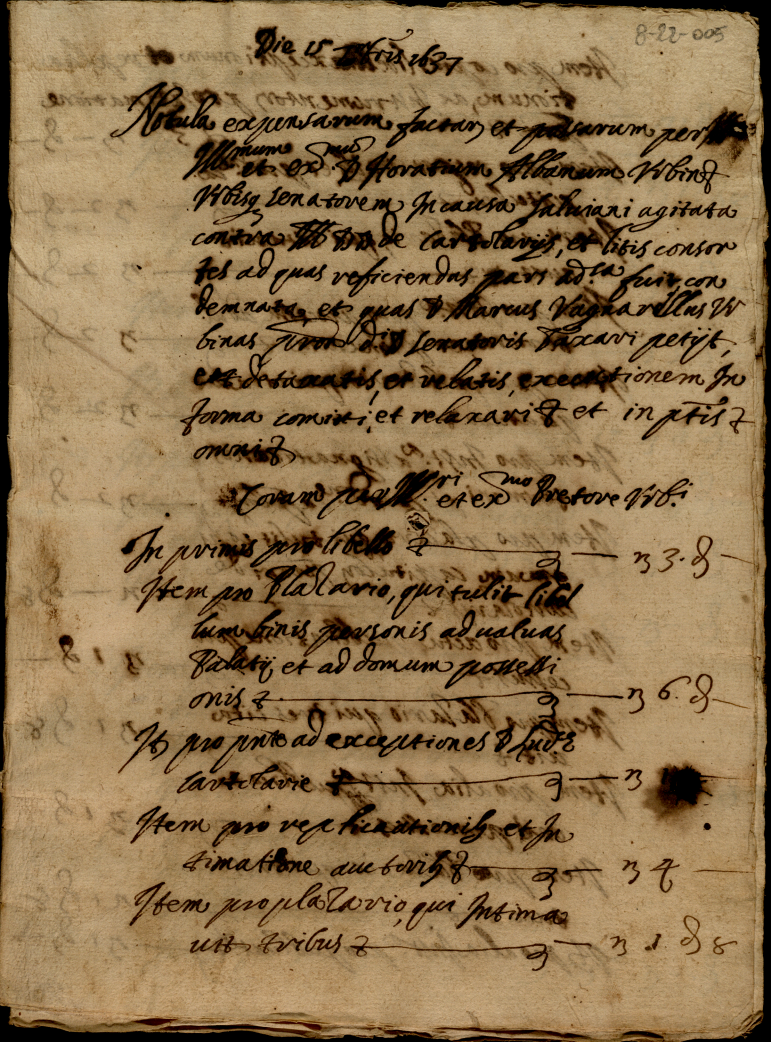 8-22-005
Die 15 1637
Notula expensarum factar et passarum per
Ill.mum et ex.mum D Horatium Albanum Urbin
Urbisq senatorem In causa salviani agitata
contra Ill DD de Cartolarijs, et litis consor
tes ad quas reficiendas pars ad.sa fuit con
demnata, et quas D Marcus Vagnarellus Ur
binas pror di D senatoris taxari petijt,
et detaxatis, et relatis, executionem In
forma comitti, et relaxari et in ptis
omni
Coram per Ill.ri et ex.mo Pretore Urb.i
In primis pro libello — 3.
Item pro Plazario, qui tulit libel
lum binis personis ad valvas
Palatij, et ad domum possessi
onis — 6.
It pro pnte ad exceptiones D
Cartolarie
Item pro replicationib et In
timatione auctorib — 4
Item pro plazario, qui Intima
vit tribus — 1. 8